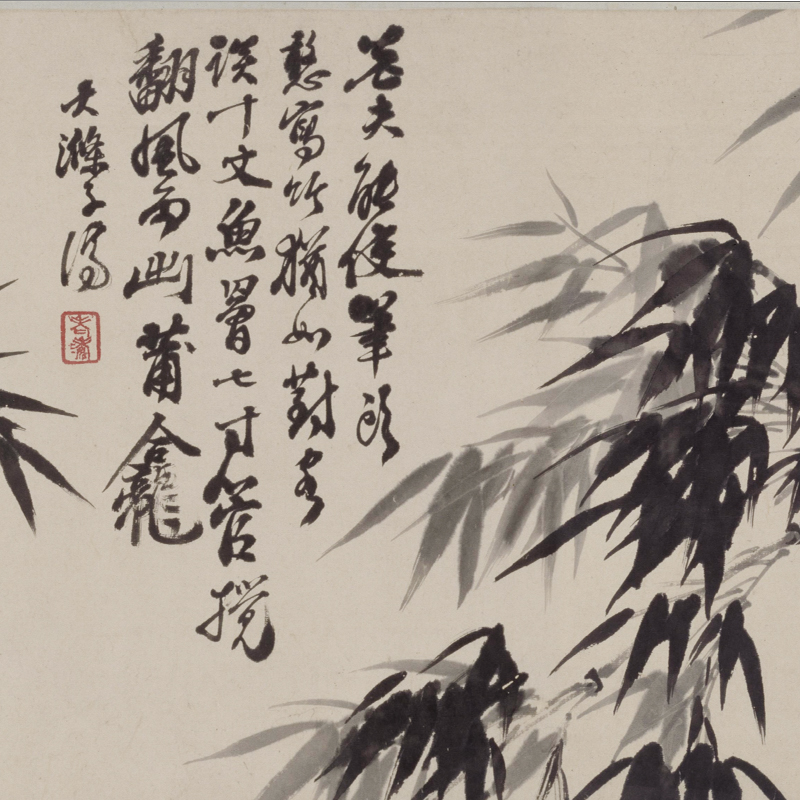 老夫能使筆頭
憨寫竹猶如對客
談十丈魚罾七寸管攪
翻風雨出莆龕
大滌子濟
老濤